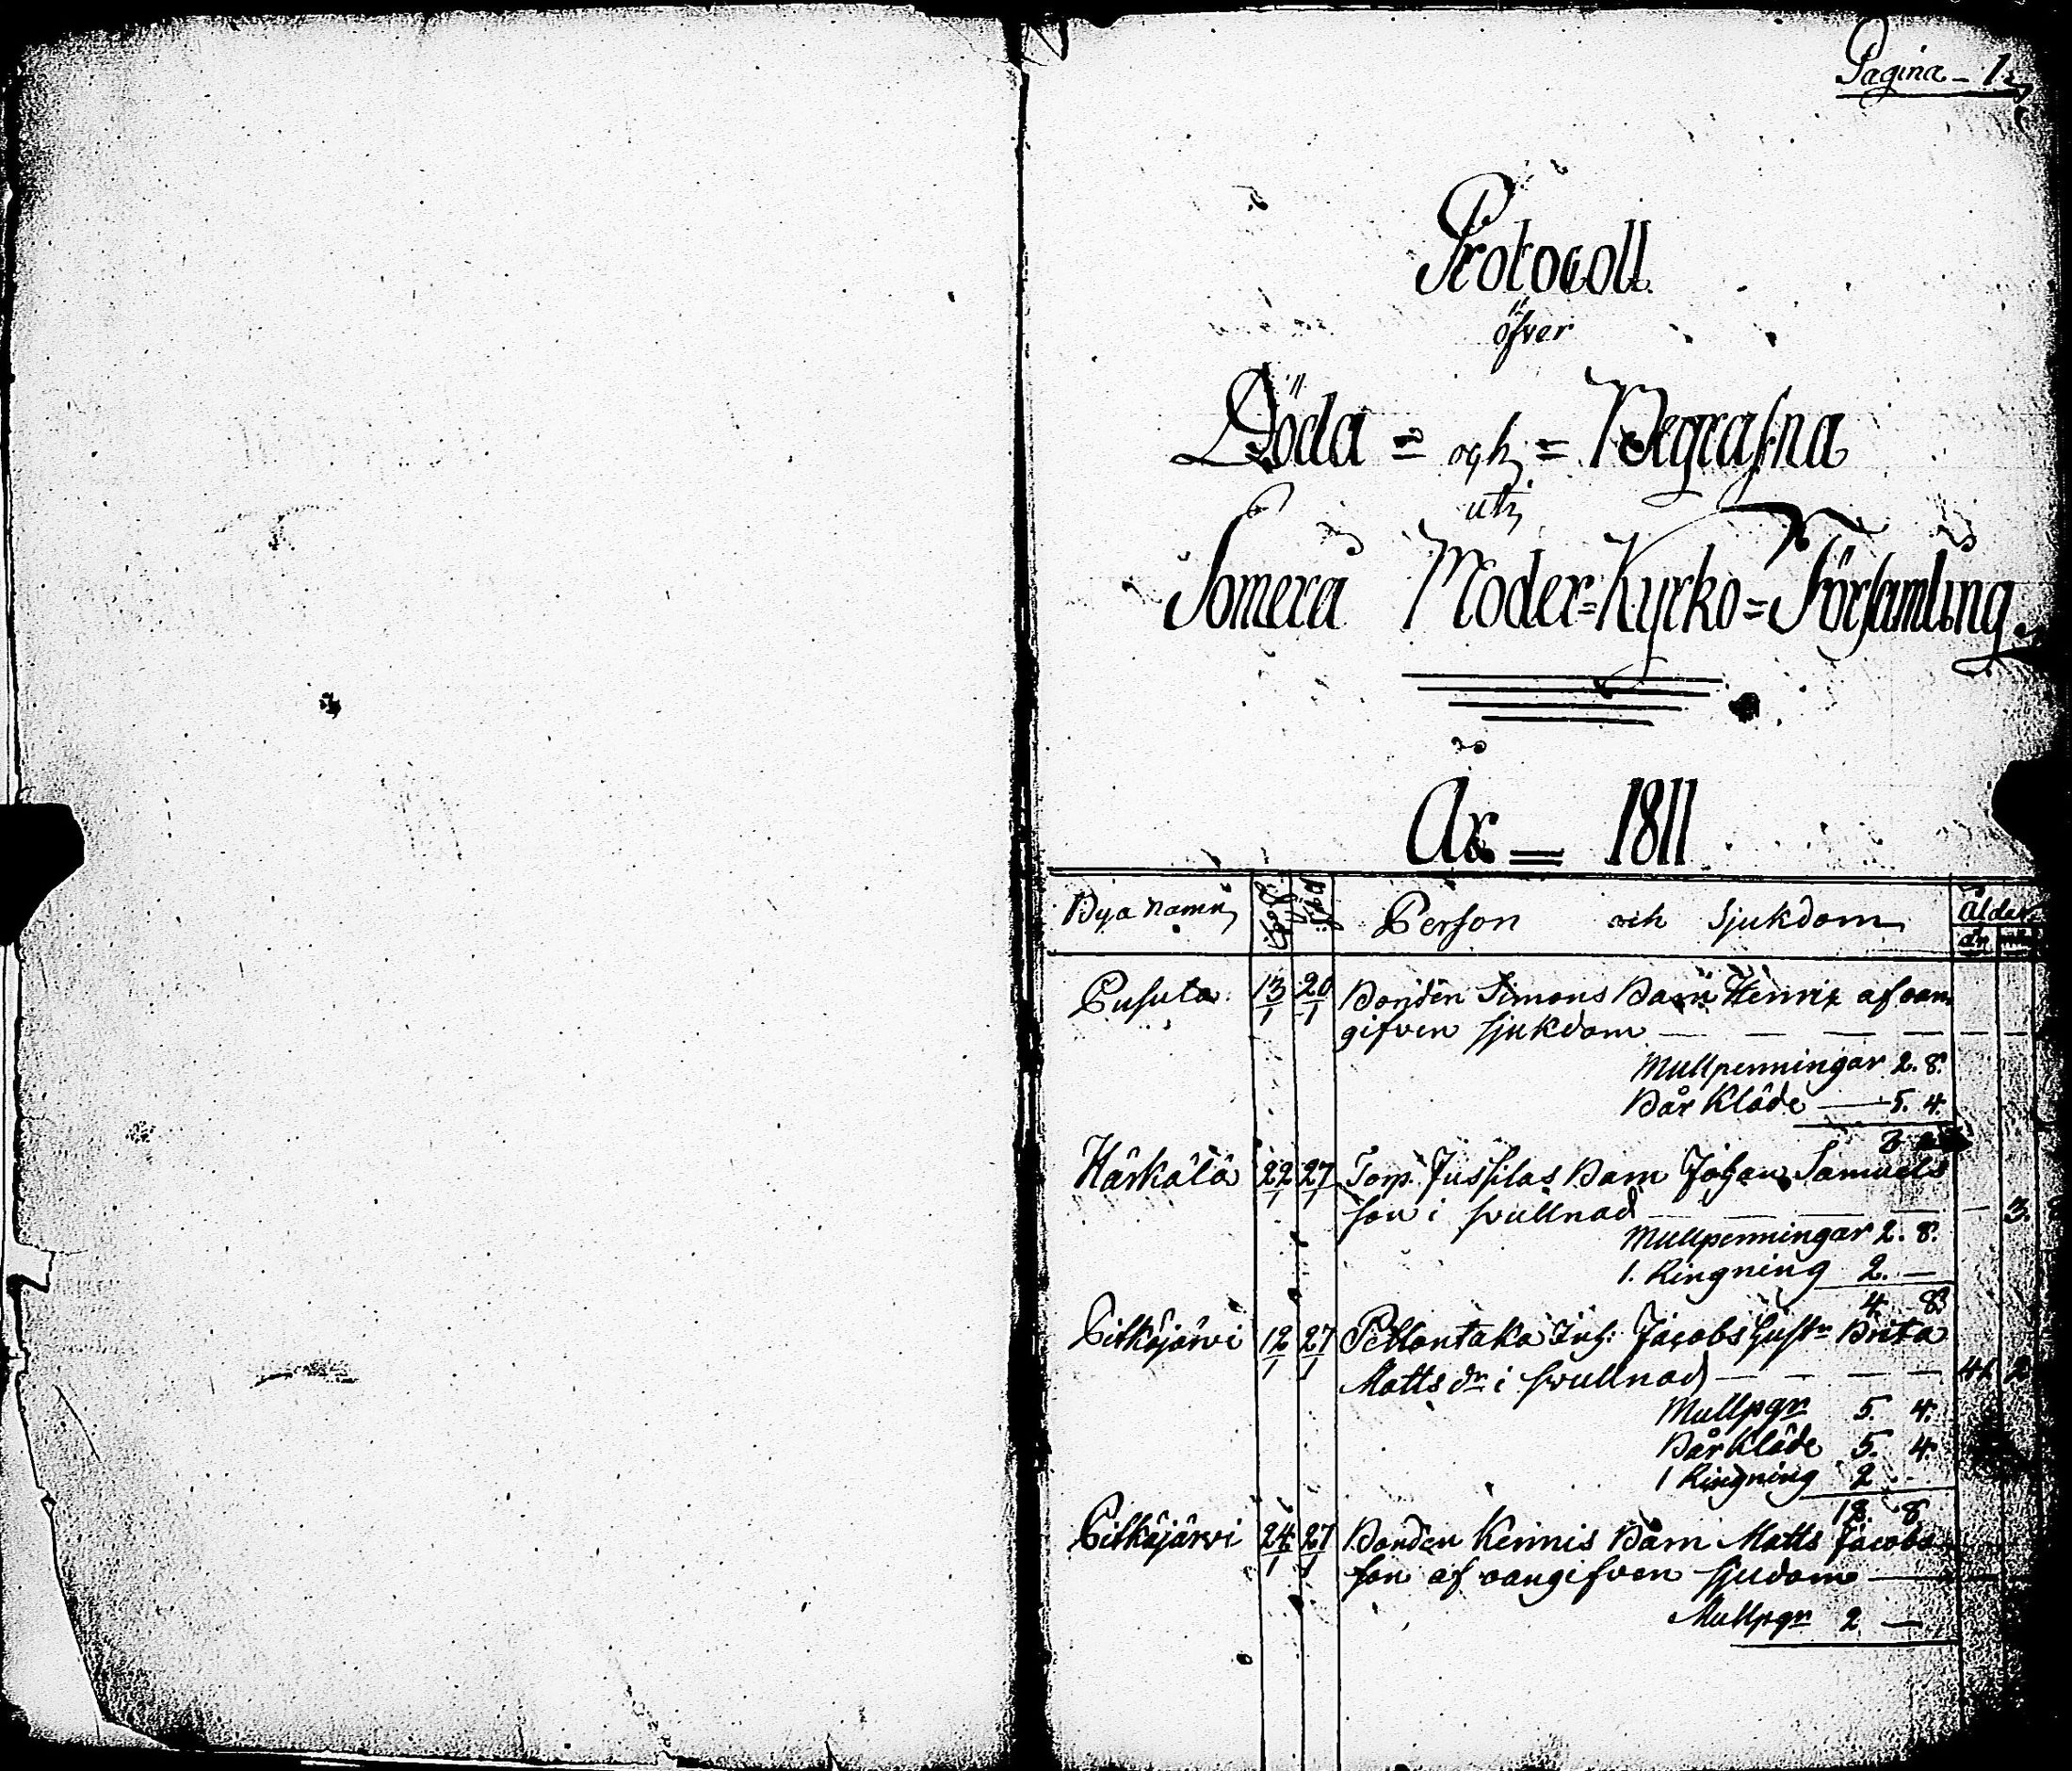 Pagina - 1.
Protocoll
öfver
Döda = och = Begrafna
uti
Somera Moder=Kyrko=Församling.
År = 1811
Bya namn Person och Sjukdom Ålder
år
Pusula 13/1 20/1 Bonden Simons Barn Henric af oan
gifven sjukdom — — — —
Mullpenningar 2. 8.
Bår Kläde — 5. 4.
Härkälä 22/1 27/1 Torp. Jussilas Barn Johan Samuels
son i svullnad — — — 3.
Mullpenningar 2. 8.
1. Ringning 2. —
4. 8
Pitkäjärvi 12/1 27/1 Inh: Jacobs Hustr Brita
Matts dr i svullnad — — — 41 2
Mullpgr 5. 4.
Bår Kläde 5. 4.
1 Ringning 2
Pitkäjärvi 24/1 27/1 Bonden Kennis Barn Matts Jacobs
son af oangifven sjudom —
Mullpgr 2 —